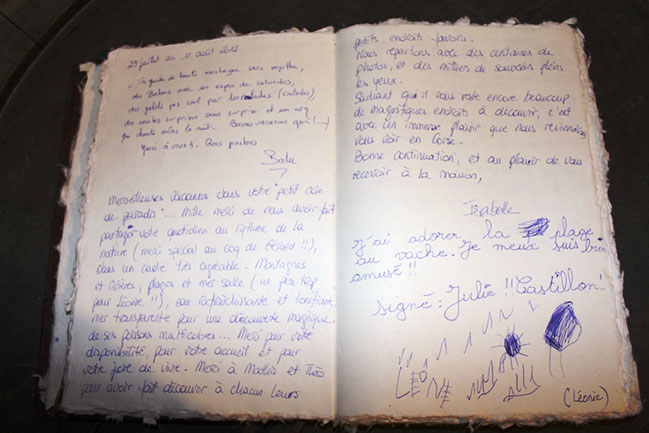 29 juillet au 11 août 2012
Un guide de haute montagne sans myrthe,
des Balous avec un expso de calvados,
des galets pas cool par les (salades),
des courbes surprises sans surprise et un coq
qui chante même la nuit. Bonnes vacances quoi! (...)
Merci à vous 4. Gros poutous
Balu
Merveilleuses vacances dans votre petit coin
de paradis... Mille merci de nous avoir fait
partager votre quotidien au rythme de la
nature (merci spécial au coq de Gérard!!),
dans un cadre très agréable. Montagnes
et rivières, plages et mer salée (un peu trop
pour Léonie!!), eau rafraîchissante et tonifiante,
mer transparente pour une découverte magique
de ses poissons multicolores... Merci pour votre
disponibilité, pour votre accueil et pour
votre joie de vivre. Merci à Mattéo et Théo
pour avoir fait découvrir à chacun leurs
petits endroits favoris.
Nous repartons avec des centaines de
photos, et des milliers de souvenirs pleins
les yeux.
Sachant qu'il nous reste encore beaucoup
de magnifiques endroits à découvrir, c'est
avec un immense plaisir que nous reviendrons
vous voir en Corse.
Bonne continuation, et au plaisir de vous
recevoir à la maison,
Isabelle
J'ai adorer la plage
au vache. Je me suis bien
amusé!!
signé: Julie!! Castillon!!
LEONIE
(Léonie)